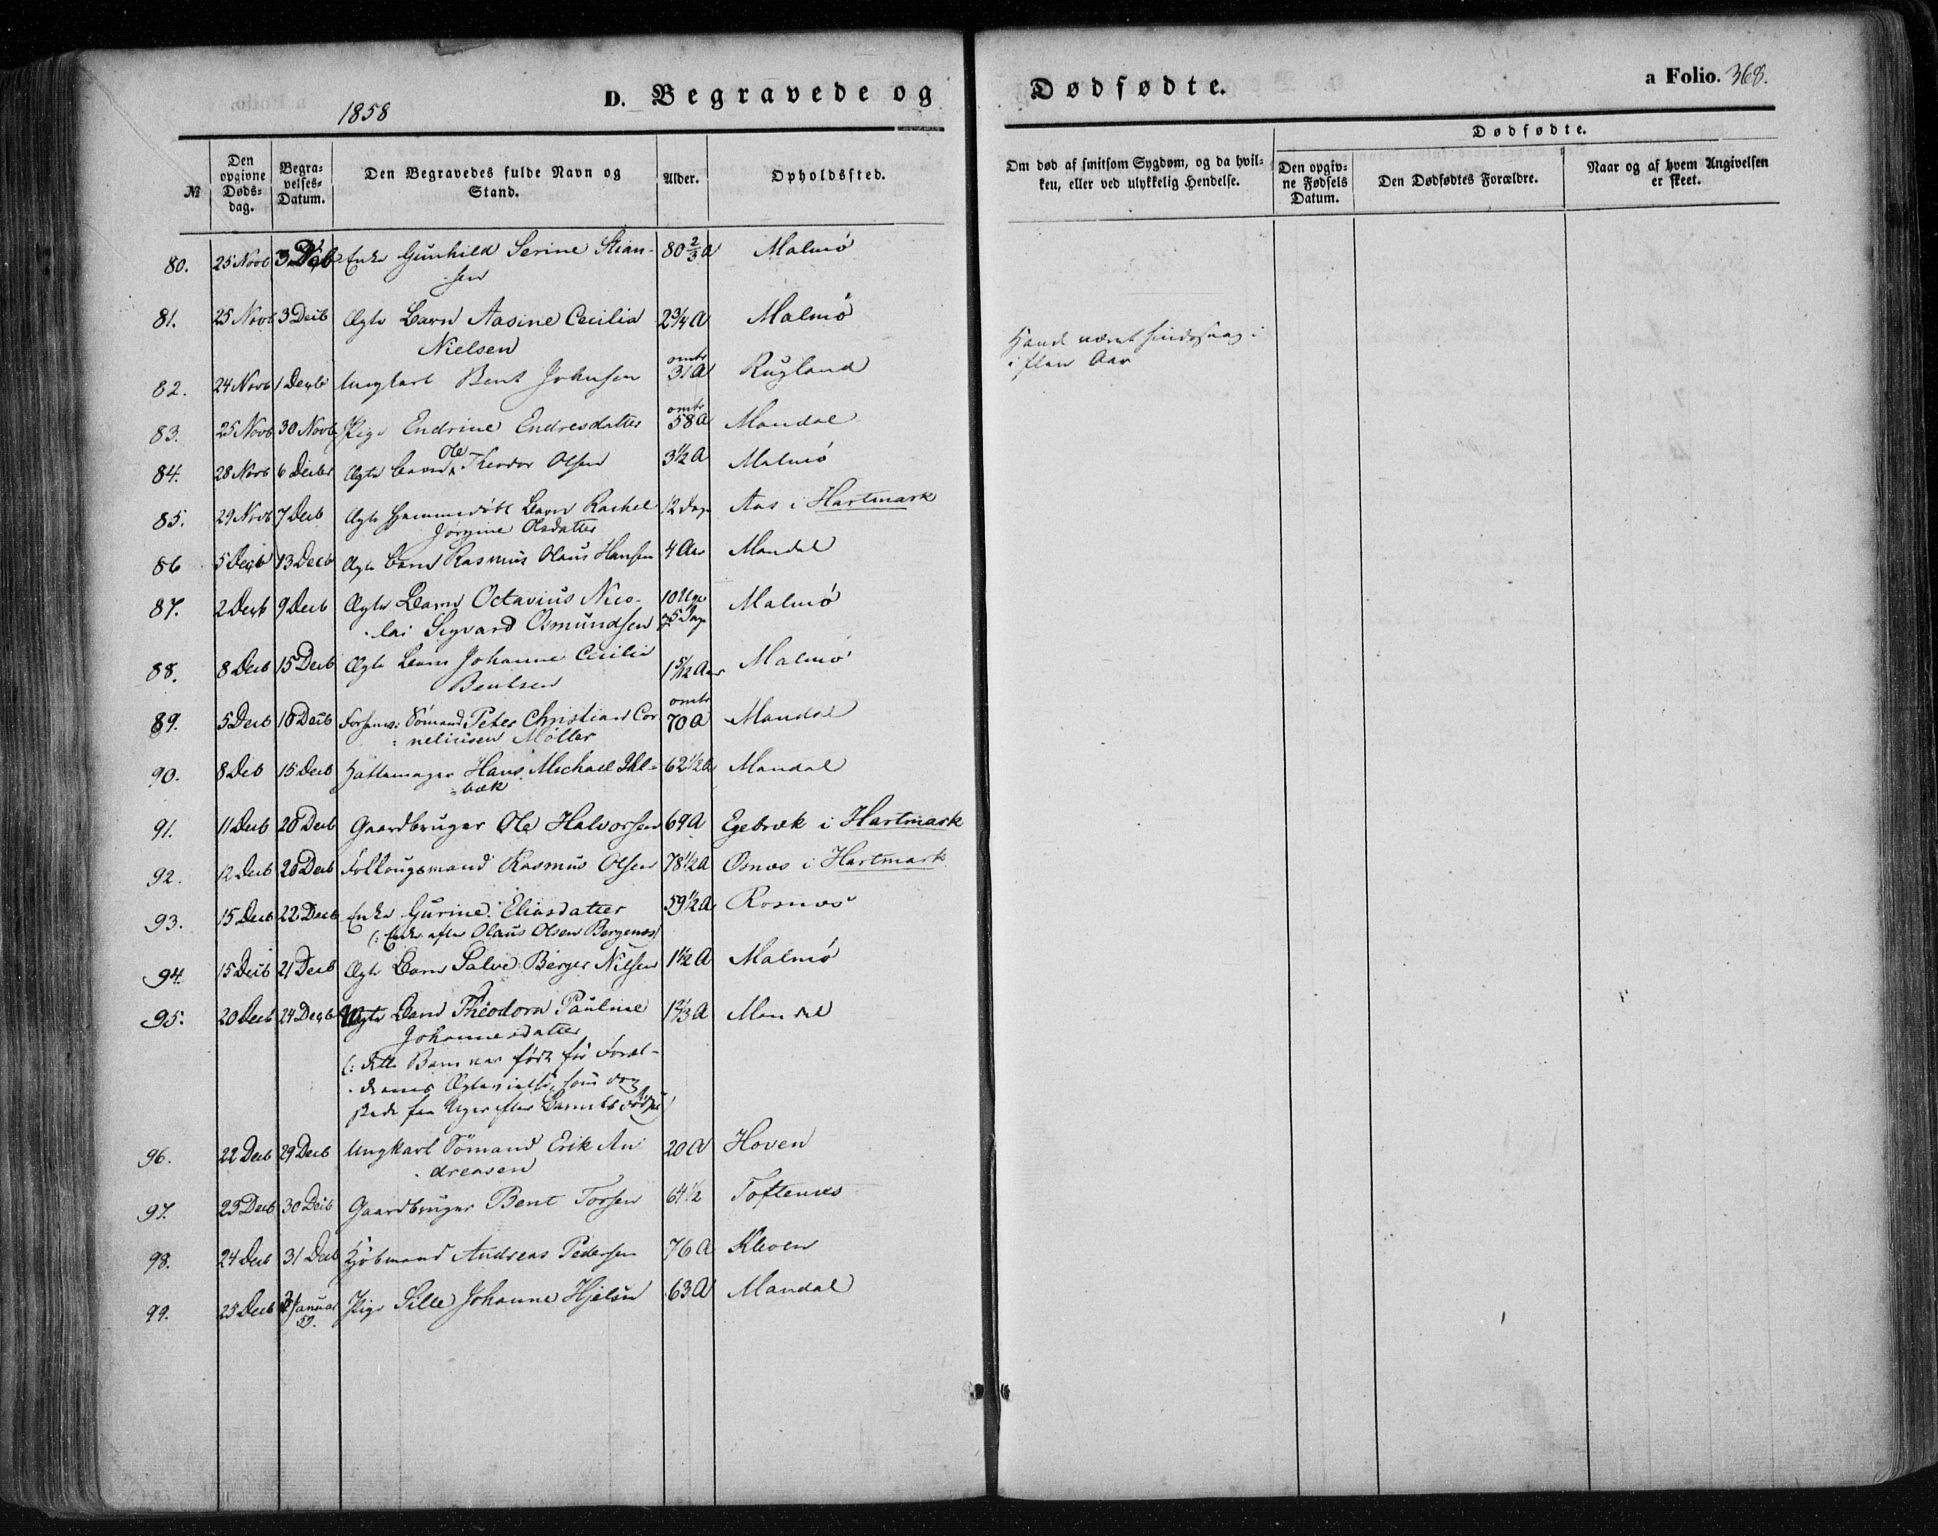 1858
D. Begravede og Dødfødte.
a Folio. 368.
№
Den opgivne Døds-dag.
Begra-velses-Datum.
Den Begravedes fulde Navn og Stand.
Alder.
Opholdssted.
Om død af smitsom Sygdom, og da hvil-ken, eller ved ulykkelig Hendelse.
Dødfødte.
Den opgiv-ne Fødsels Datum.
Den Dødfødtes Forældre.
Naar og af hvem Angivelsen er skeet.
80. 25 Novb 3 Decb Enke Gunhild Serine Stian- 80 2/3 A Malmø
sen
81. 25 Novb 3 Decb Ægte Barn Aasine Cecilia 2 3/4 A Malmø
Nielsen
82. 24 Novb 1 Decb Ungkarl Bent Johnsen omtr 31 A Rugland
Havde været sindssvag i
i flere Aar
83. 25 Novb 30 Novb Pige Endrine Endresdatter omtr 58 A Mandal
84. 28 Novb 6 Decbr Ægte Barn Ole Theodor Olsen 3 1/2 A Malmø
85. 29 Novb 7 Decb Ægte hjemmedøbt Barn Rachel 12 Dage Aas i Hartmark
Jørgine Olsdatter
86 5 Decb 13 Decb Ægte Barn Rasmus Olaus Hansen 4 Aar Mandal
87. 2 Decb 9 Decb Ægte Barn Octavius Nico- 10 Uger Malmø
lai Sigvard Osmundsen 5 Dage
88. 8 Decb 15 Decb Ægte Barn Johanne Cecilie 1 5/12 Aar Malmø
Bentsen
89. 5 Decb 10 Decb Forhenv: Sømand Peter Christian Cor omtr 70 A Mandal
neliusen Møller
90. 8 Deb 15 Decb Hattemager Hans Michael Ihl- 62 1/2 A Mandal
bæk
91. 11 Decb 20 Decb Gaardbruger Ole Halvorsen 69 A Egebæk i Hartmark
92. 12 Decb 20 Decb Follougsmand Rasmus Olsen 78 1/2 A Osnes i Hartmark
93. 15 Decb 22 Decb Enke Gurine Eliasdatter 59 1/2 A Rosnæs
(: Enke efter Olaus Olsen Bergenæs)
94. 15 Decb 21 Decb Ægte Barn Salve Berger Nilsen 1 1/2 A Malmø
95. 20 Decb 24 Decb Barn Theodora Pauline 1 2/3 A Mandal
Johannesdatter
(: dette Barn var født før Foræl-
drenes Ægtevielse, som dog
skede faa Uger efter Barnets Fødsel)
96. 22 Decb 29 Decb Ungkarl Sømand Erik An 20 A Hoven
dreasen
97. 23 Decb 30 Decb Gaardbruger Bent Torsen 64 1/2 Toftenes
98. 24 Decb 31 Decb Kjøbmand Andreas Pedersen 76 A Kleven
99. 25 Decb Januar 59. Pige Sille Johanne Hjelm 63 A Mandal